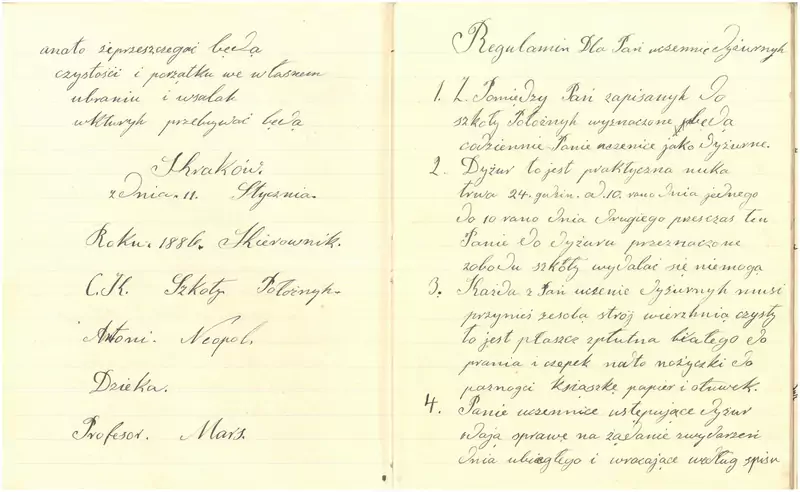 anato żeprzeszczegać będą
czystości i porzątku we własnem
ubraniu i wsalah
wkturyh przebywać będą
Kraków.
zdnia. 11. Stycznia.
Roku. 1886. Kierownik.
C.K. Szkoły Położnyh.
Antoni. Neopol.
Dzieka.
Profesor. Mars.
Regulamin Dla Pań uczennic Dyżurnyh
1. Z. Pomiędzy Pań zapisanyh do
szkoły Położnyh wysnaczone będą
codziennie Panie uczenice jako dyżurne.
2. Dyżur to jest praktyczna nuka
trwa 24. godzin. od. 10. rano dnia jednego
do 10 rano dnia drugiego przesczas ten
Panie do dyżuru przeznaczone
zobodu szkoły wydalać się niemogą
3. Każda z Pań uczenic dyżurnyh musi
przynieś zesolą strój wierzhnią czysty
to jest płaszcz zpłutna białego do
prania i czepek nato nożyczki do
paznogci książkę papier i ołuwek.
4. Panie uczennice wstępujące dyżur
zdają sprawę na żądanie zwydarzeń
dnia ubiegłego i wracające według spisu